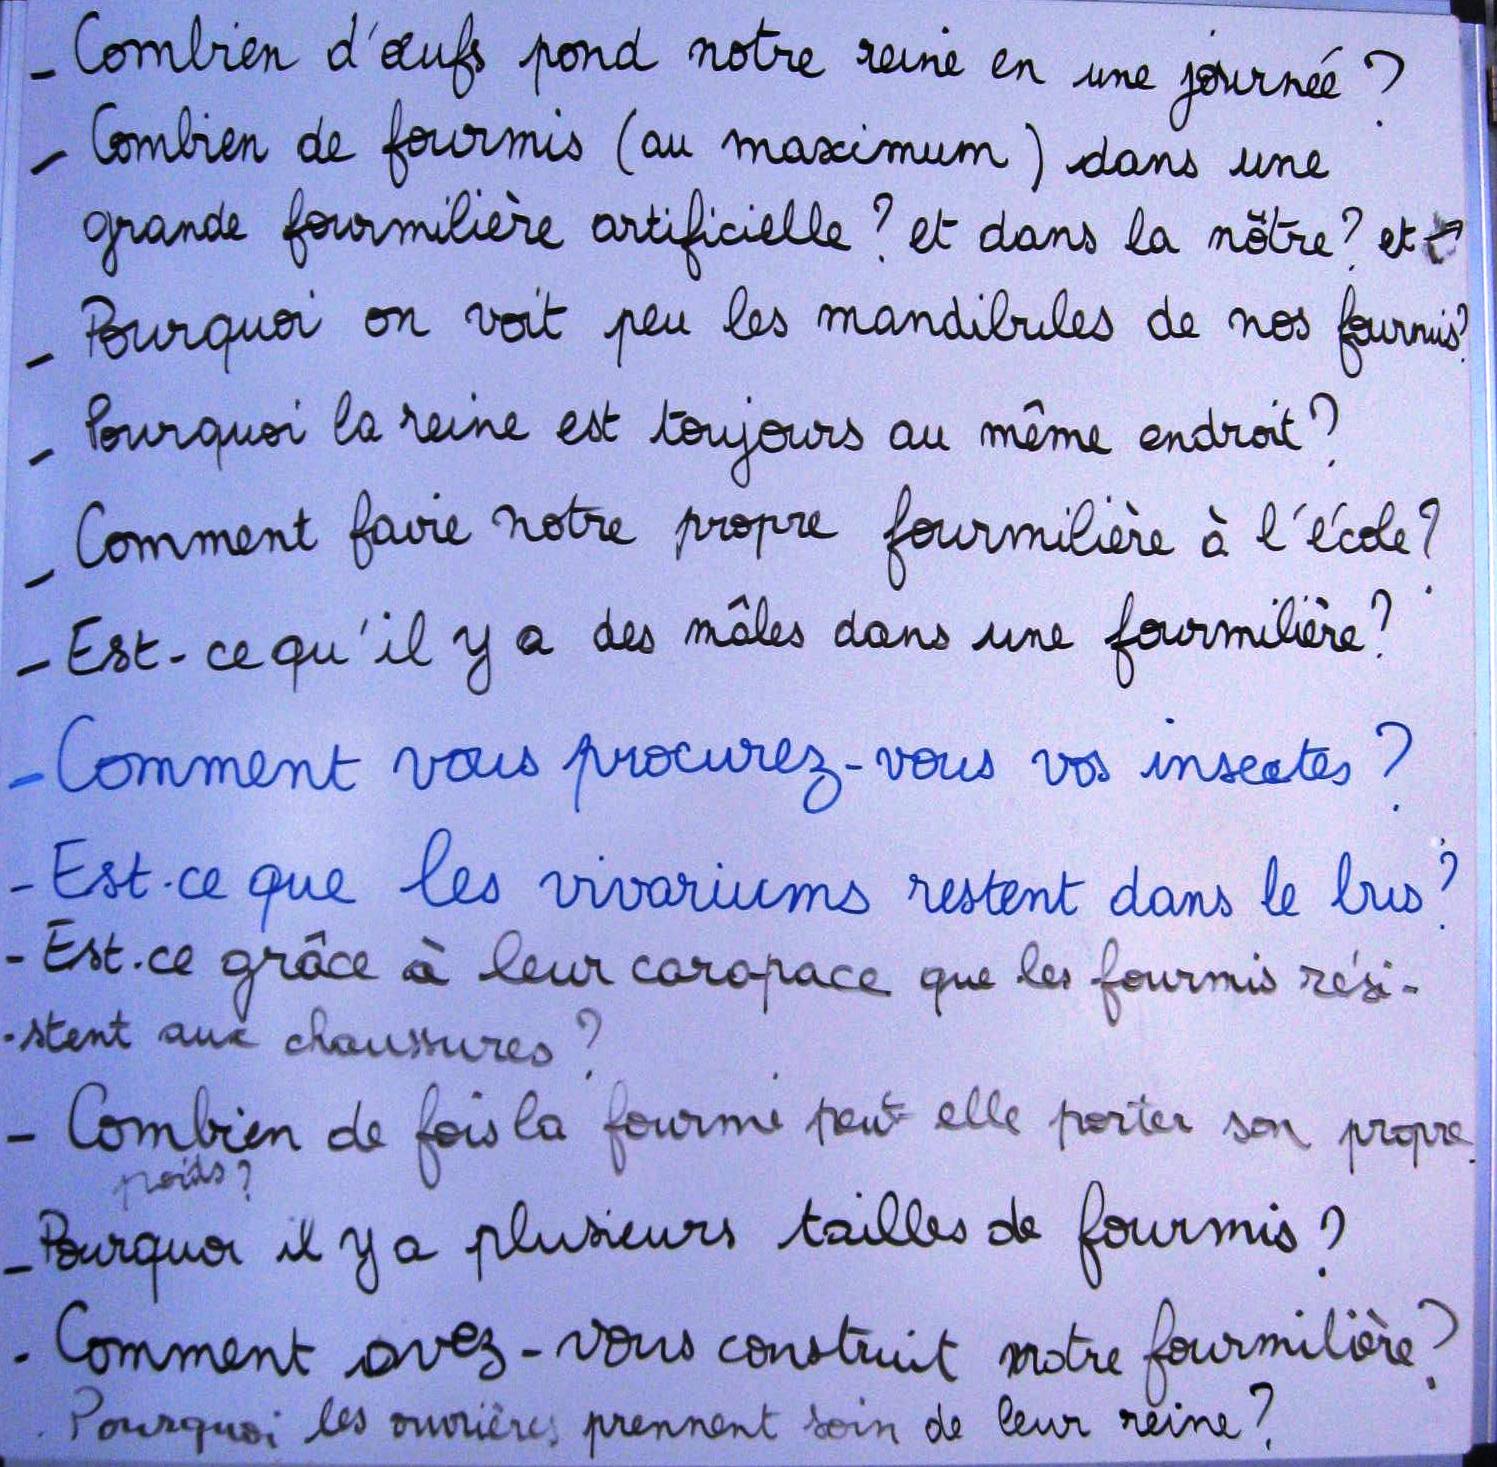 - Combien d'œufs pond notre reine en une journée ?
- Combien de fourmis (au maximum) dans une
grande fourmilière artificielle ? et dans la nôtre ? et
- Pourquoi on voit peu les mandibules de nos fourmis ?
- Pourquoi la reine est toujours au même endroit ?
- Comment faire notre propre fourmilière à l'école ?
- Est-ce qu'il y a des mâles dans une fourmilière ?
- Comment vous procurez-vous vos insectes ?
- Est-ce que les vivariums restent dans le bus ?
- Est-ce grâce à leur carapace que les fourmis rési-
-stent aux chaussures ?
- Combien de fois la fourmi peut-elle porter son propre
poids ?
- Pourquoi il y a plusieurs tailles de fourmis ?
- Comment avez-vous construit notre fourmilière ?
- Pourquoi les ouvrières prennent soin de leur reine ?